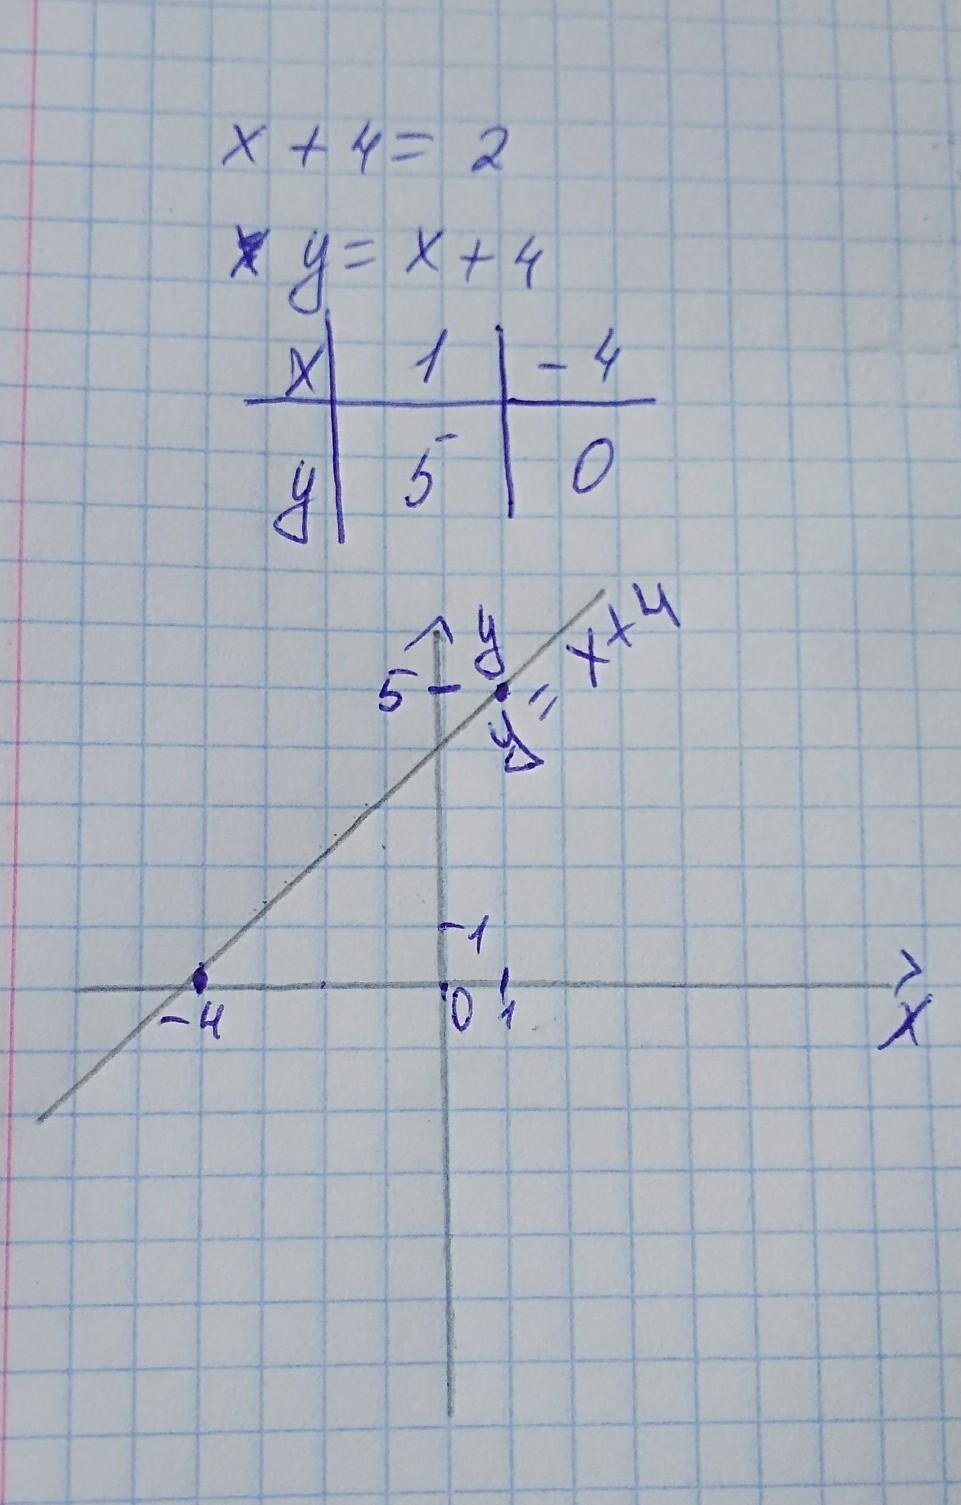 x + 4 = 2
y = x + 4
x | 1 | -4
y | 5 | 0
y
5
y = x + 4
1
-4 0 1
x